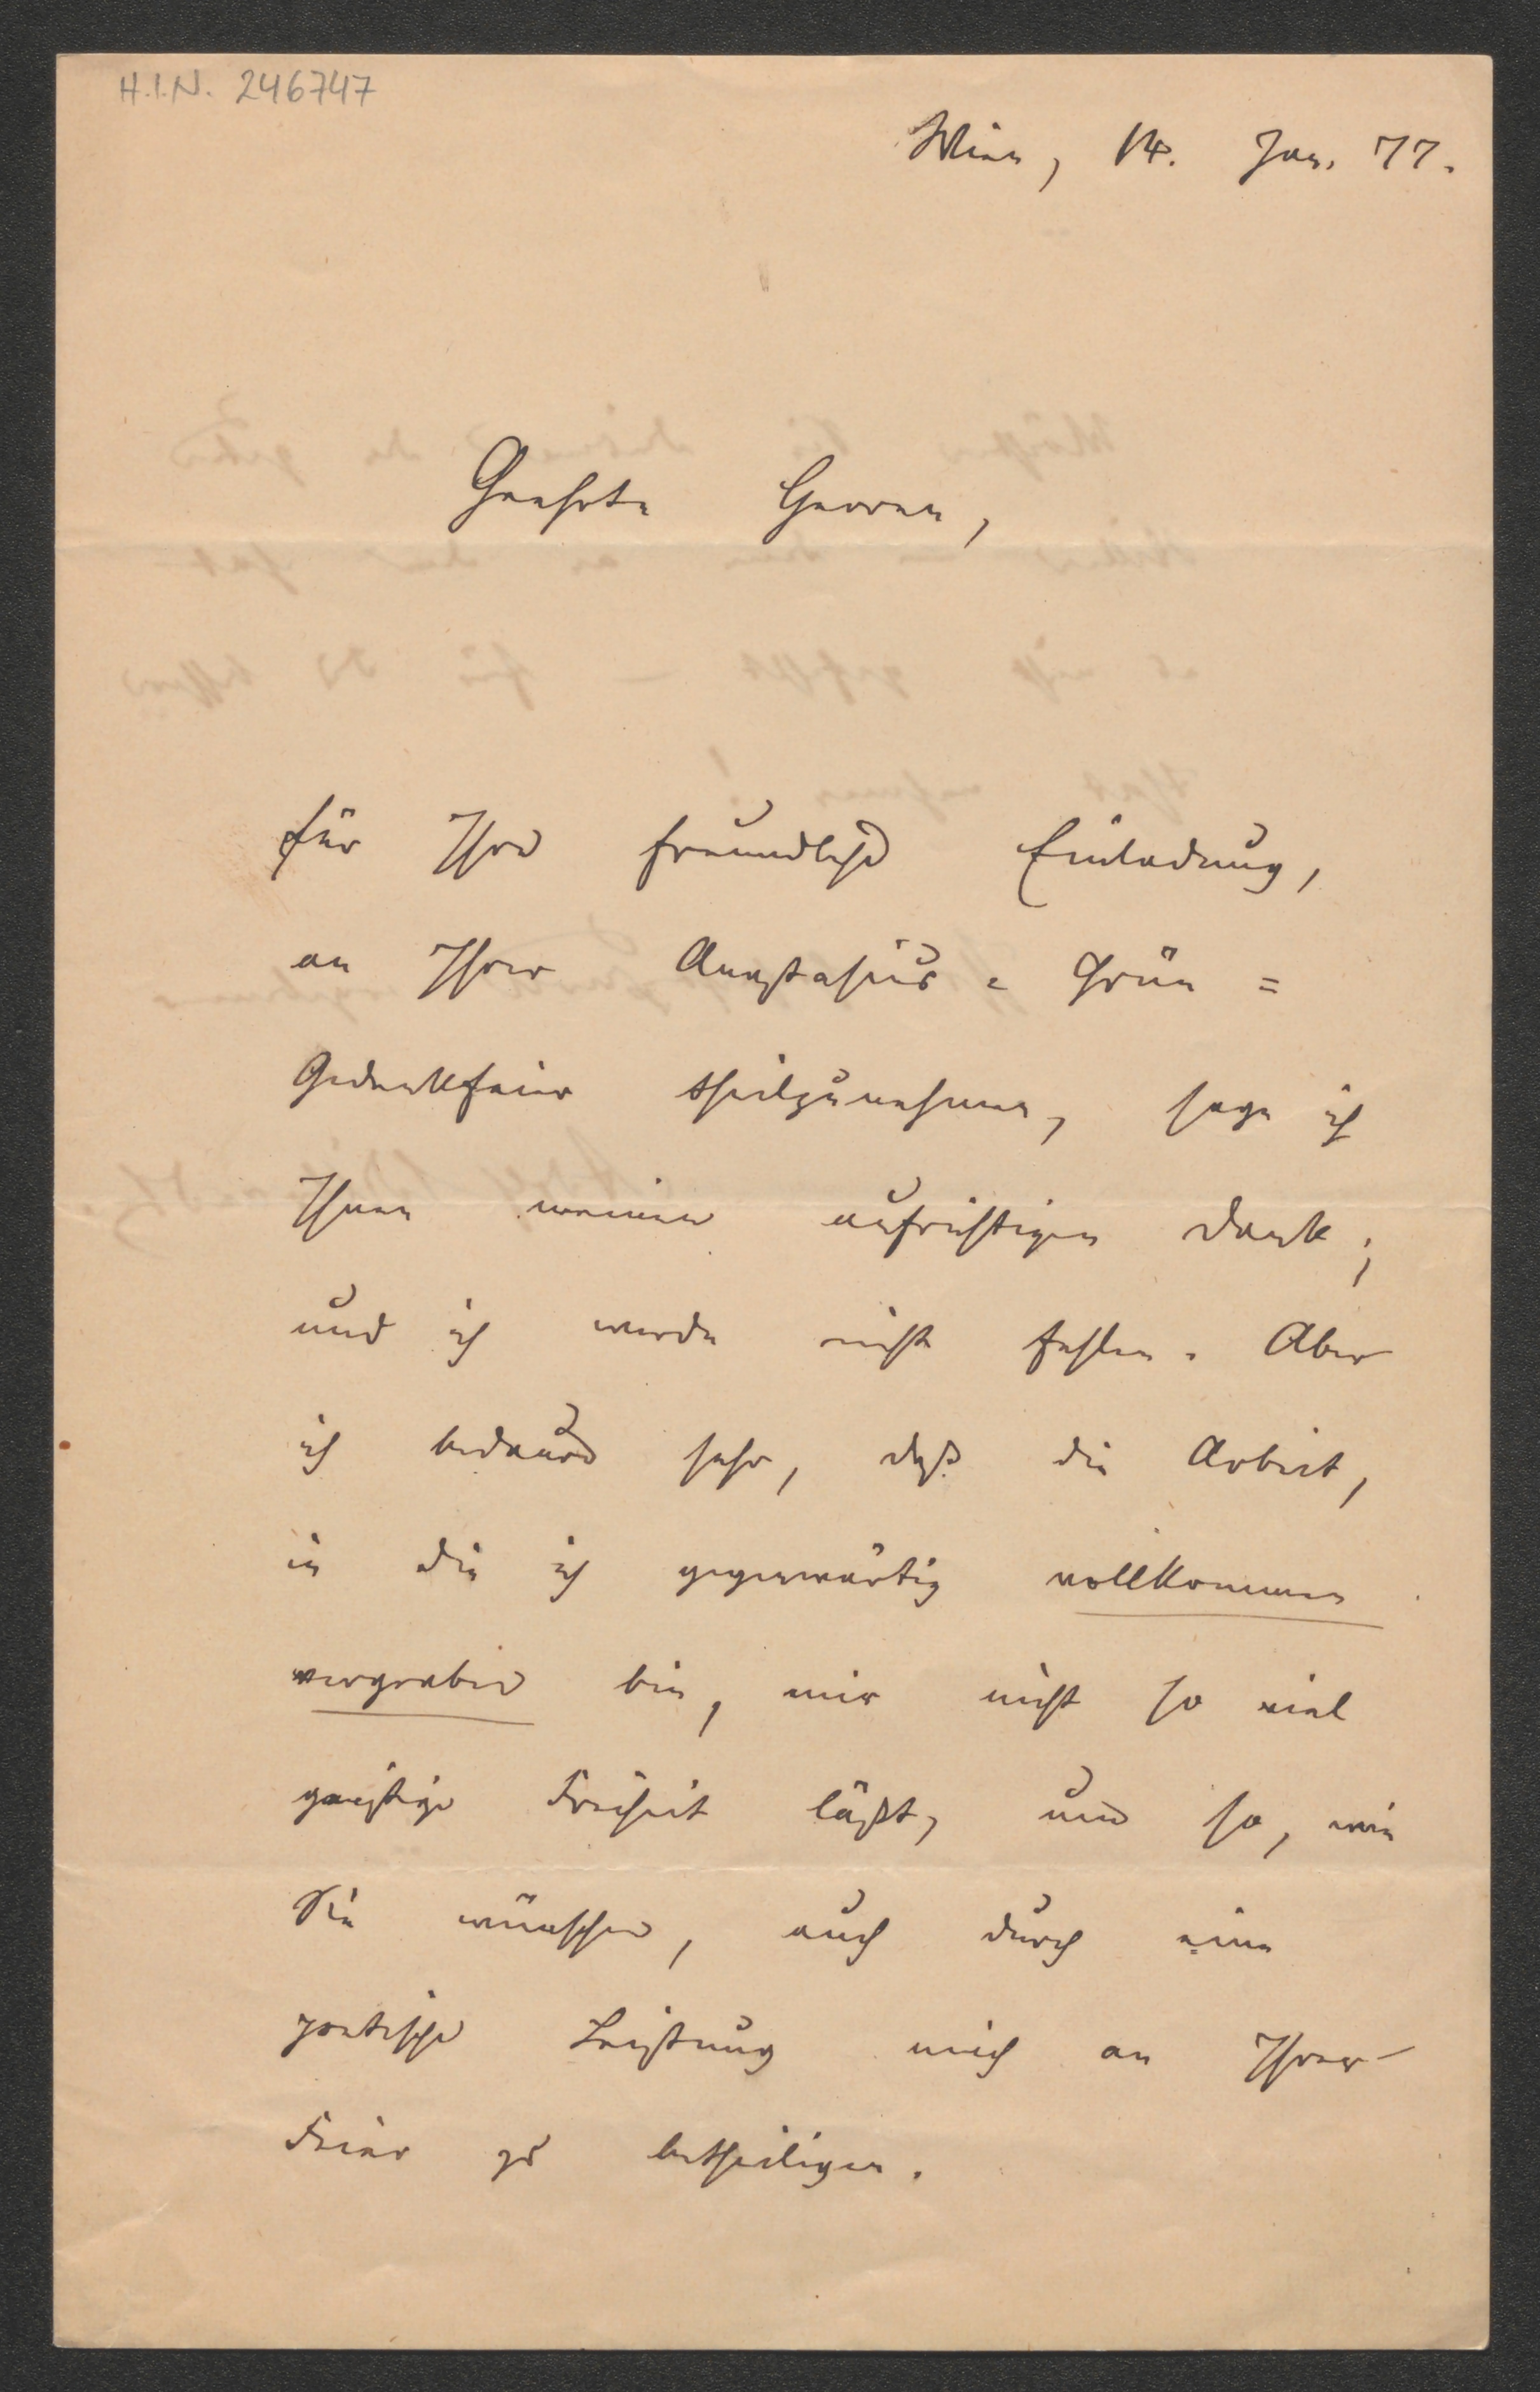 H.I.N. 246747
Wien, 14. Jan. 77.
Geehrte Herren,
für Ihre freundliche Einladung,
an Ihrer Anastasius = Grün =
Gedenkfeier theilzunehmen, sage ich
Ihnen meinen aufrichtigen Dank;
und ich werde nicht fehlen. Aber
ich bedaure sehr, daß die Arbeit,
in die ich gegenwärtig vollkommen
vergraben bin, mir nicht so viel
geistige Freiheit läßt, um so, wie
Sie wünschen, auch durch eine
poetische Leistung mich an Ihrer
Feier zu betheiligen.